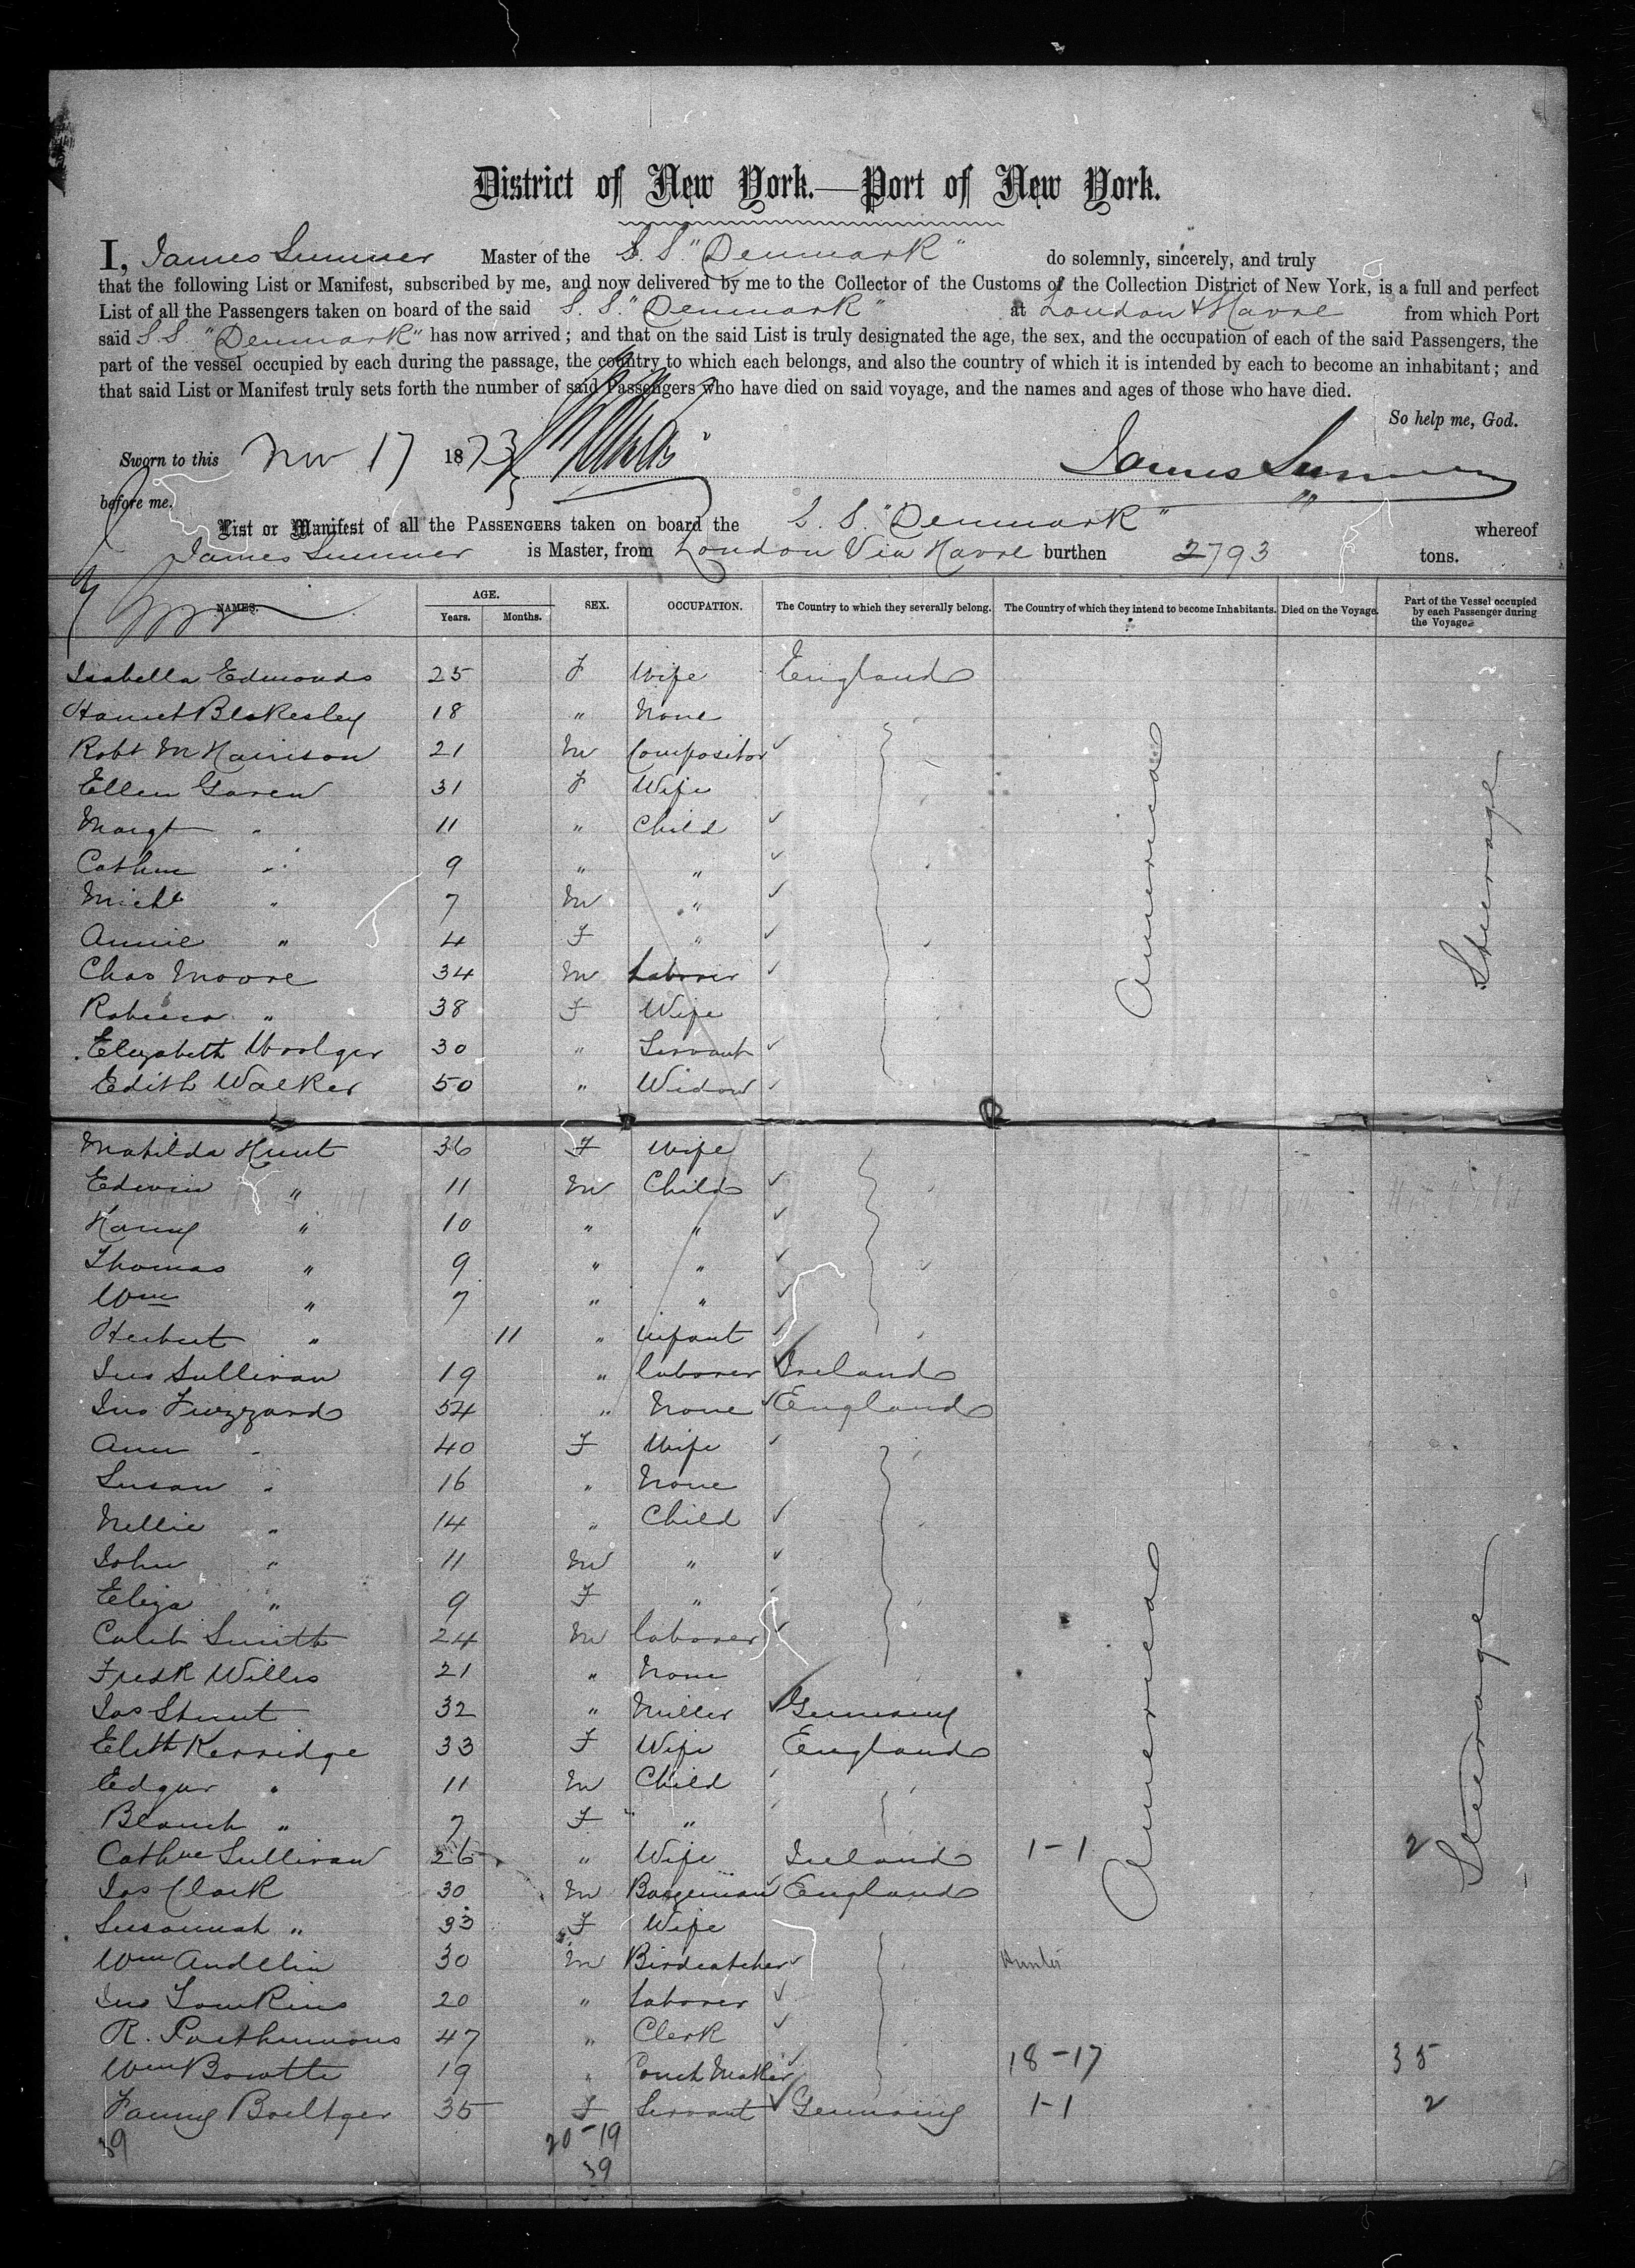 District of New York.—Port of New York.
I, James Sumner Master of the S. S. "Denmark" do solemnly, sincerely, and truly
that the following List or Manifest, subscribed by me, and now delivered by me to the Collector of the Customs of the Collection District of New York, is a full and perfect
List of all the Passengers taken on board of the said S. S. "Denmark" at London & Havre from which Port
said S.S. "Denmark" has now arrived; and that on the said List is truly designated the age, the sex, and the occupation of each of the said Passengers, the
part of the vessel occupied by each during the passage, the country to which each belongs, and also the country of which it is intended by each to become an inhabitant; and
that said List or Manifest truly sets forth the number of said Passengers who have died on said voyage, and the names and ages of those who have died.
So help me, God.
Sworn to this Nov 17 1873 James Sumner
before me.
List or Manifest of all the PASSENGERS taken on board the S. S. "Denmark" whereof
James Sumner is Master, from London Via Havre burthen 2793 tons.
NAMES. AGE. Years. Months. SEX. OCCUPATION. The Country to which they severally belong. The Country of which they intend to become Inhabitants. Died on the Voyage. Part of the Vessel occupied by each Passenger during the Voyage.
Isabella Edmonds 25 F Wife England
Harriet Blakesley 18 " None
Robt M Harrison 21 M Compositor
Ellen Garen 31 F Wife
Margt " 11 " Child
Cathne " 9 " "
Michl " 7 M "
Annie " 4 F "
Chas Moore 34 M Laborer
Rebecca " 38 F Wife
Elizabeth Woolger 30 " Servant
Edith Walker 50 " Widow
America Steerage
Matilda Hunt 36 F Wife
Edwin " 11 M Child
Harry " 10 " "
Thomas " 9 " "
Wm " 7 " "
Herbert " 11 " Infant
Jno Sullivan 19 " laborer Ireland
Jno Fuzzard 54 " None England
Ann " 40 F Wife
Susan " 16 " None
Nellie " 14 " Child
John " 11 M "
Eliza " 9 F "
Caleb Smith 24 M laborer
Fredk Willis 21 " None
Jas Stunt 32 " Miller Germany
Elith Kerridge 33 F Wife England
Edgar " 11 M Child
Blanch " 7 F "
Cathne Sullivan 26 " Wife Ireland 1-1 2
Jas Clark 30 M Bargeman England
Susannah " 33 F Wife
Wm Andelin 30 M Birdcatcher Hunter
Jno Tomkins 20 " Laborer
R. Posthumous 47 " Clerk
Wm Bowtte 19 " Coach Maker 18-17 35
Fanny Boeltger 35 F Servant Germany 1-1 2
America Steerage
39 20-19
39